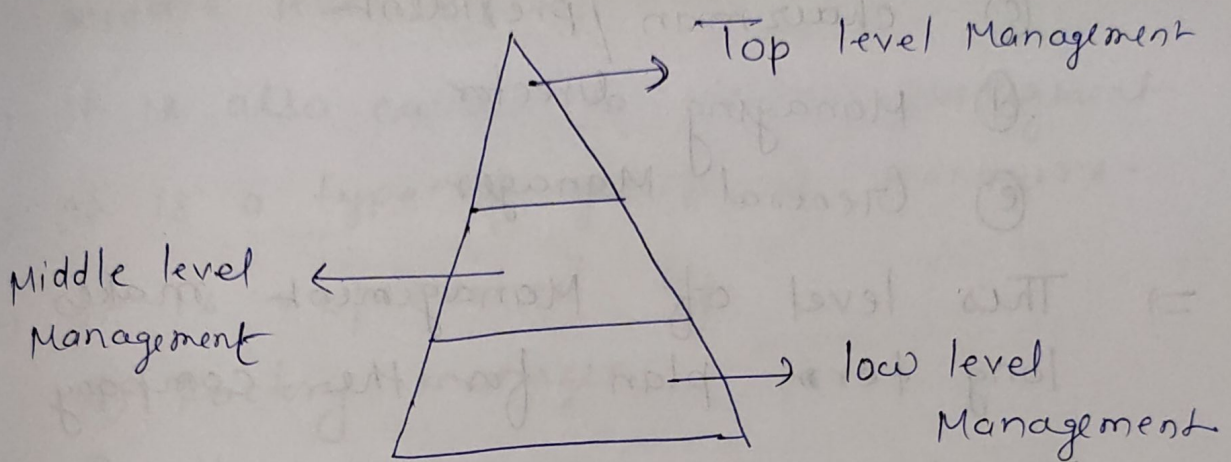 Top level Management
Middle level
Management
low level
Management